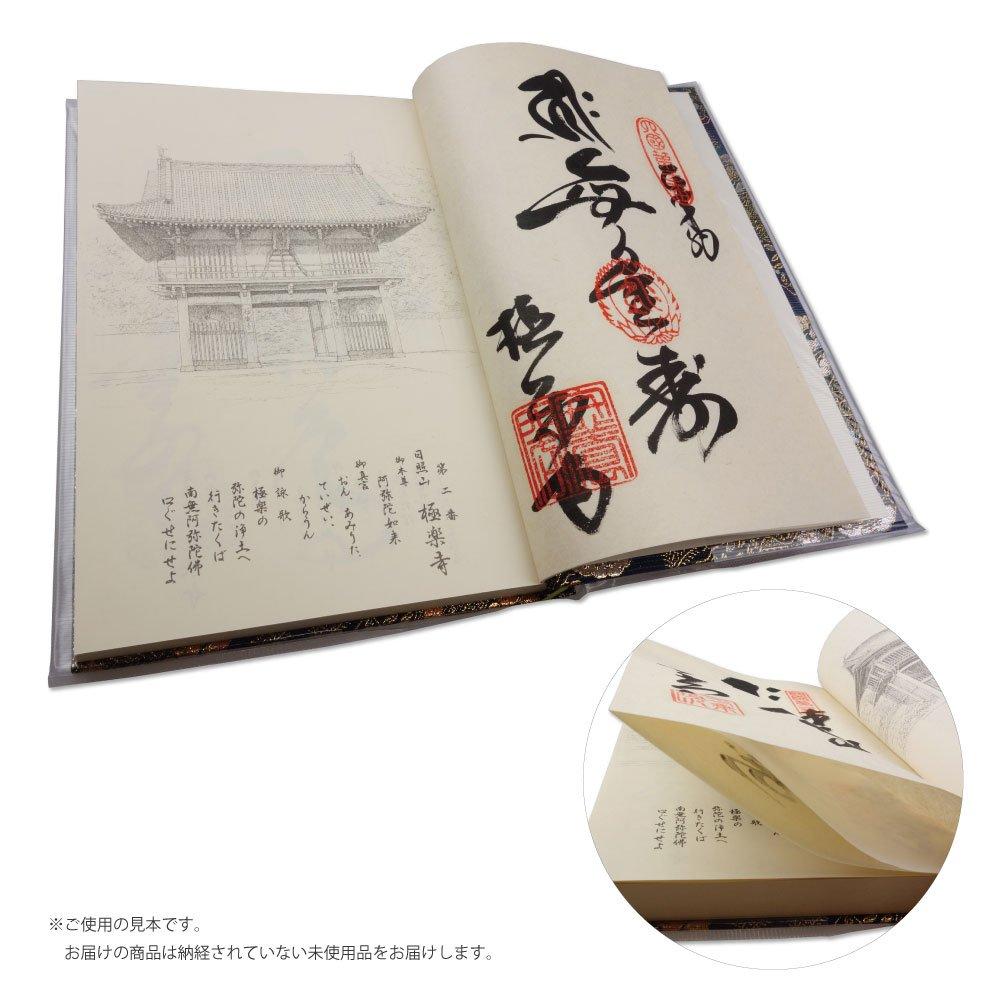 第二番
日照山 極楽寺
御本尊
阿弥陀如来
御真言
おん、あみりた、
ていぜい、
からうん
御詠歌
極楽の
弥陀の浄土へ
行きたくば
南無阿弥陀佛
口ぐせにせよ
奉納
無量寿
極楽寺
歌
極楽の
弥陀の浄土へ
行きたくば
南無阿弥陀佛
口ぐせにせよ
※ご使用の見本です。
お届けの商品は納経されていない未使用品をお届けします。